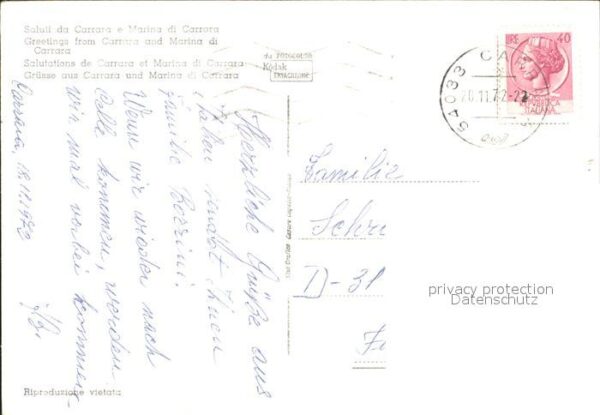 Saluti da Carrara e Marina di Carrara
Greetings from Carrara and Marina di
Carrara
Salutations de Carrara et Marina di Carrara
Grüsse aus Carrara und Marina di Carrara
Kodak
LIRE 40
ITALIANA
54033
20.11.72-22
Carrara, 18.11.1972
Herzliche Grüße aus
Italien sendet Ihnen
Familie
Wenn wir wieder nach
Celle kommen, werden
wir mal vorbei kommen
Familie
Schr
D-31
privacy protection
Datenschutz
Riproduzione vietata